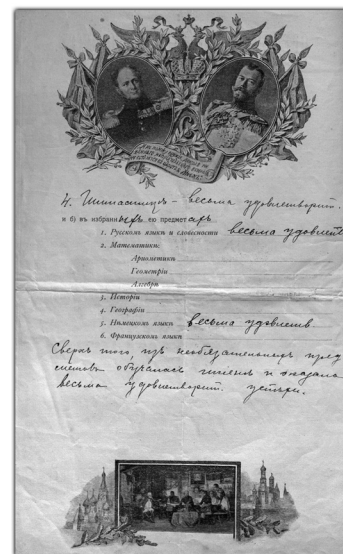 4. Гимнастикѣ – весьма удовлетворит.
и б) въ избранныхъ ею предметахъ
1. Русскомъ языкѣ и словесности весьма удовлетв
2. Математикѣ:
Ариѳметикѣ
Геометріи
Алгебрѣ
3. Исторіи
4. Географіи
5. Нѣмецкомъ языкѣ весьма удовлетв
6. Французскомъ языкѣ
Сверхъ того, изъ необязательныхъ пред
метовъ обучалась пѣнію и оказала
весьма удовлетворит. успѣхи.